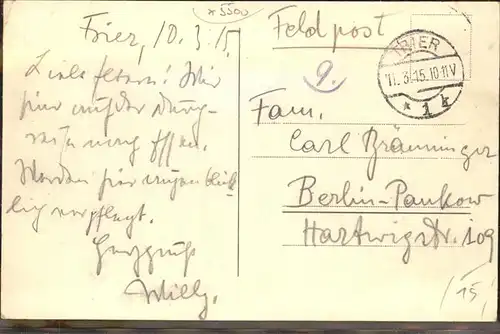 * 5500
Trier, 10.3.15.
Liebe Eltern! Wir
sind auf der Durch-
reise nach Essen.
Werden hier augenblick-
lich verpflegt.
Herzgruß
Willy.
Feldpost
9.
TRIER
11.3.15.10-11V
* 1 k
Fam.
Carl Bräuninger
Berlin-Pankow
Hartwigstr. 109
/15,